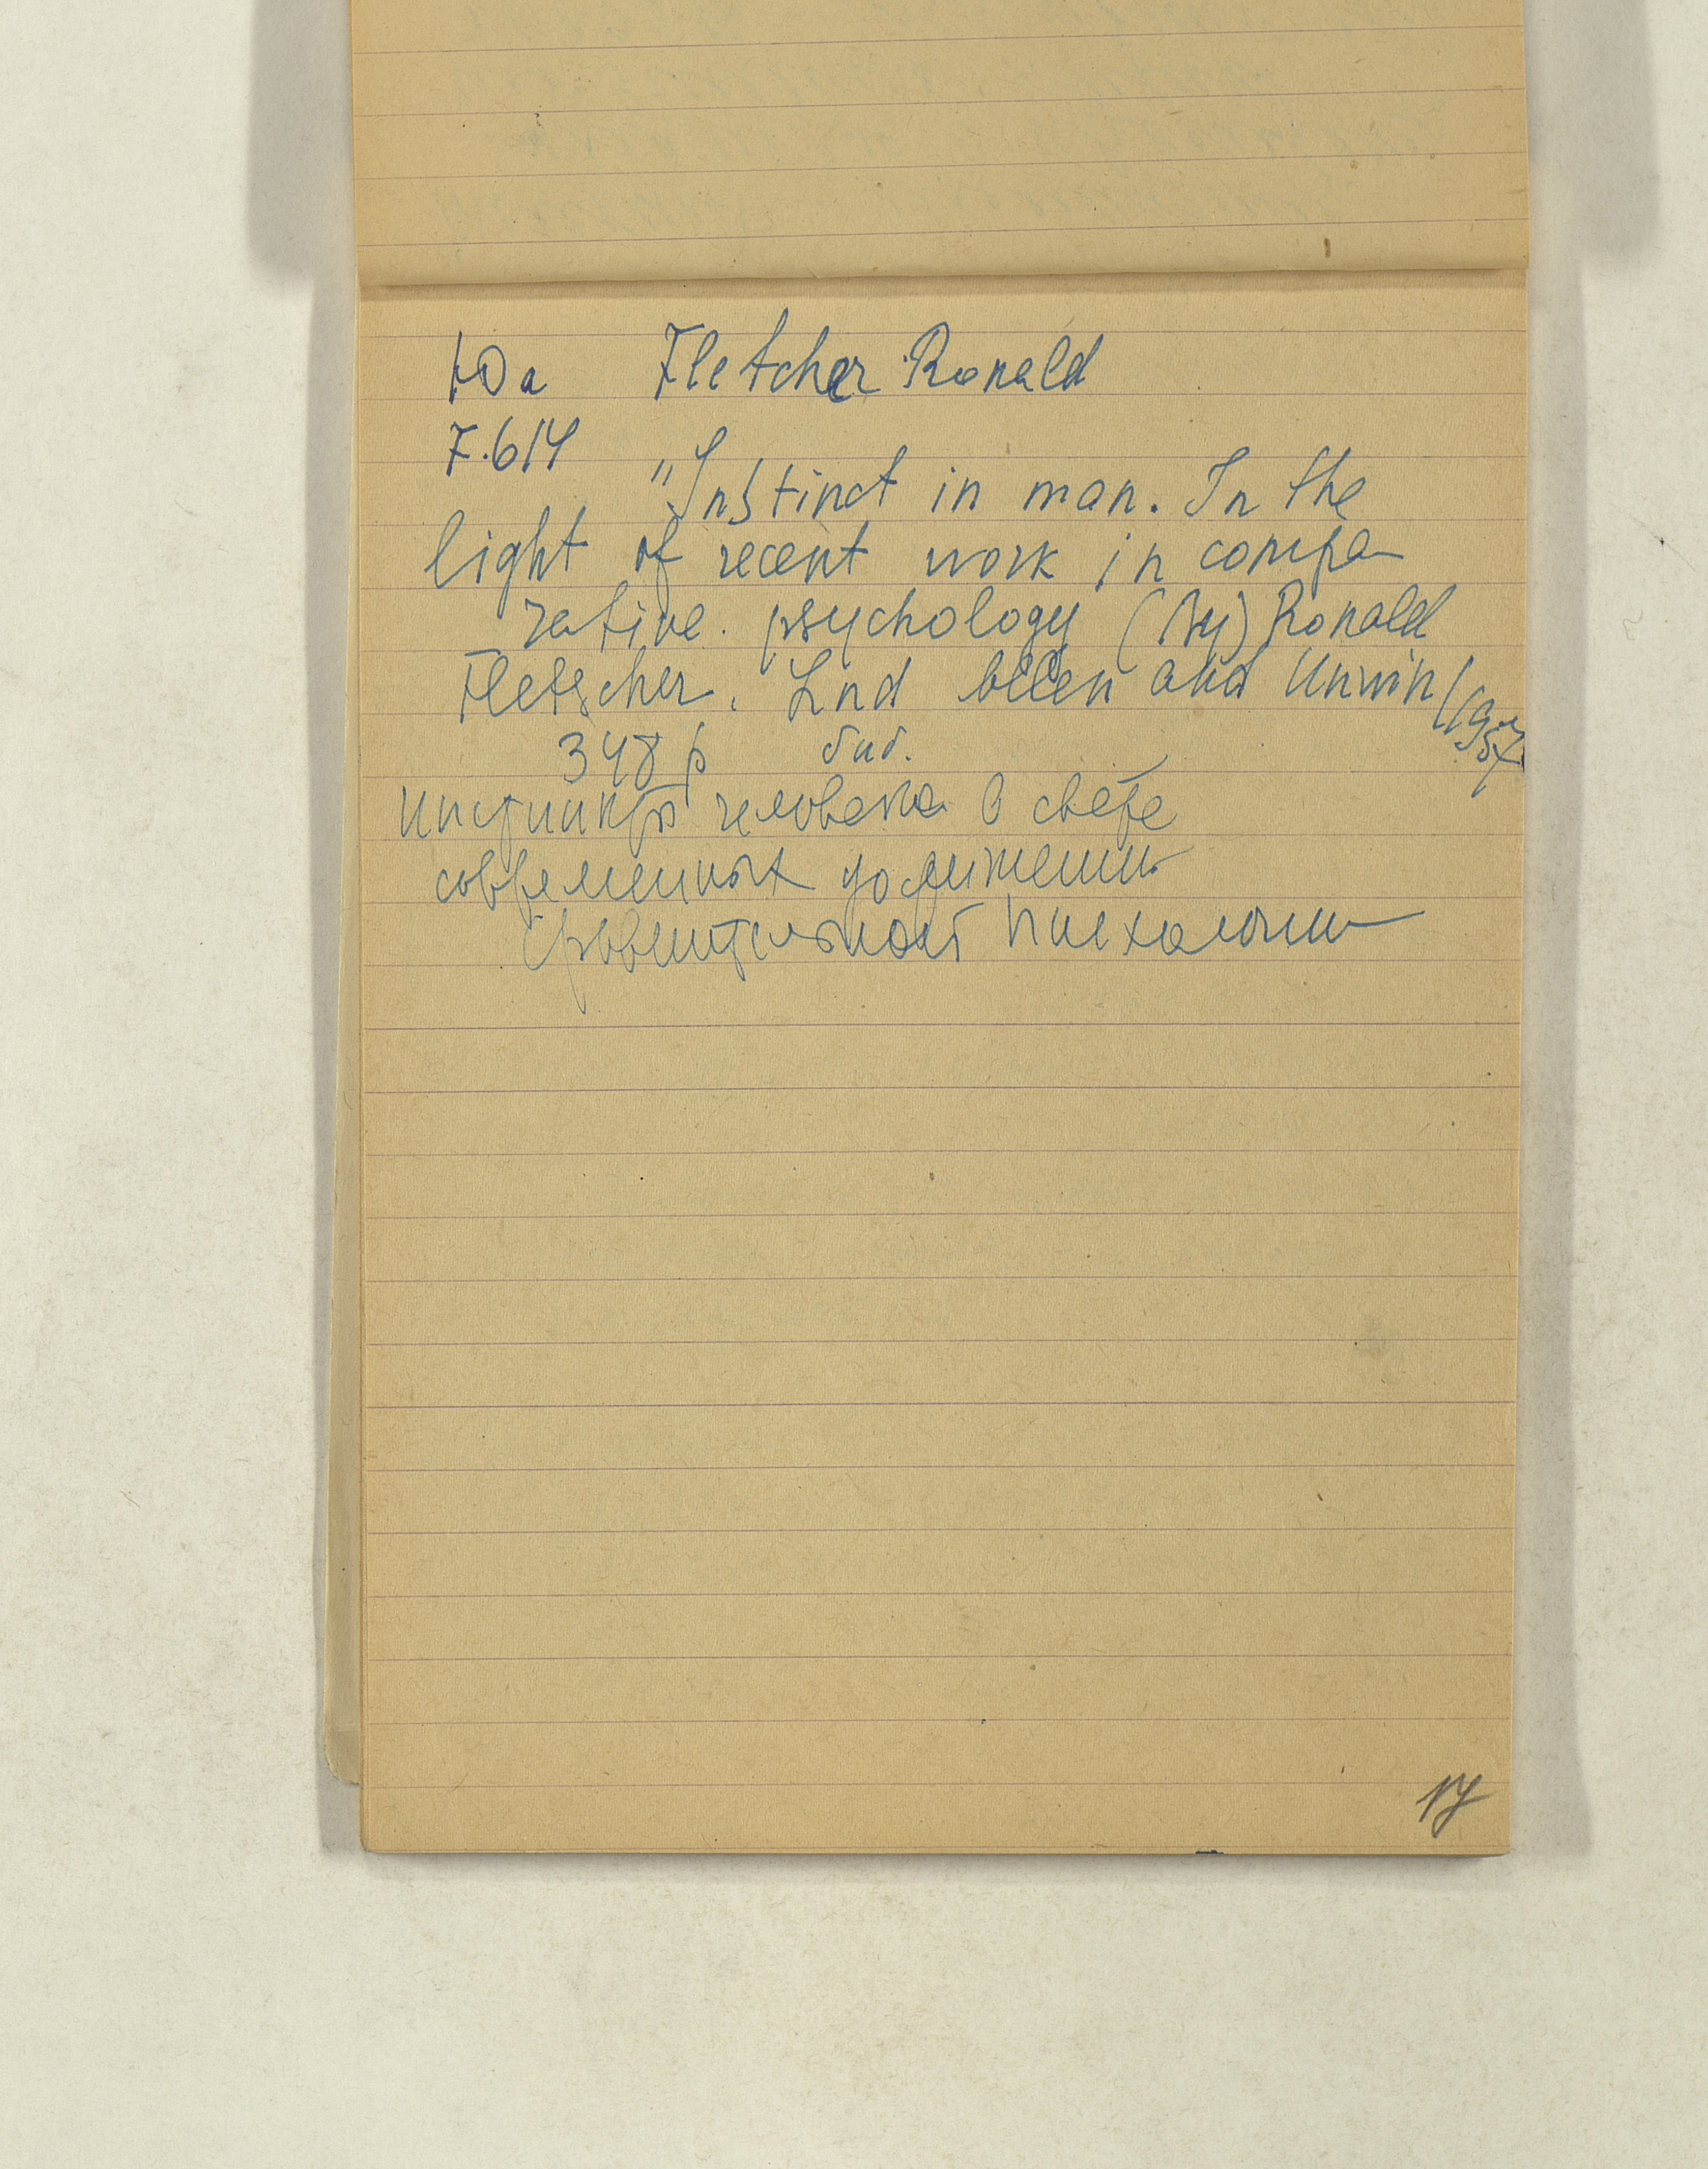 Юа Fletcher Ronald
7.614
„Instinct in man. In the
light of recent work in compa
rative. psychology (By) Ronald
Fletscher. Lnd Allen and Unwin (1957
348 p биб.
Инстинкты человека в свете
современных достижений
сравнительной психологии
14